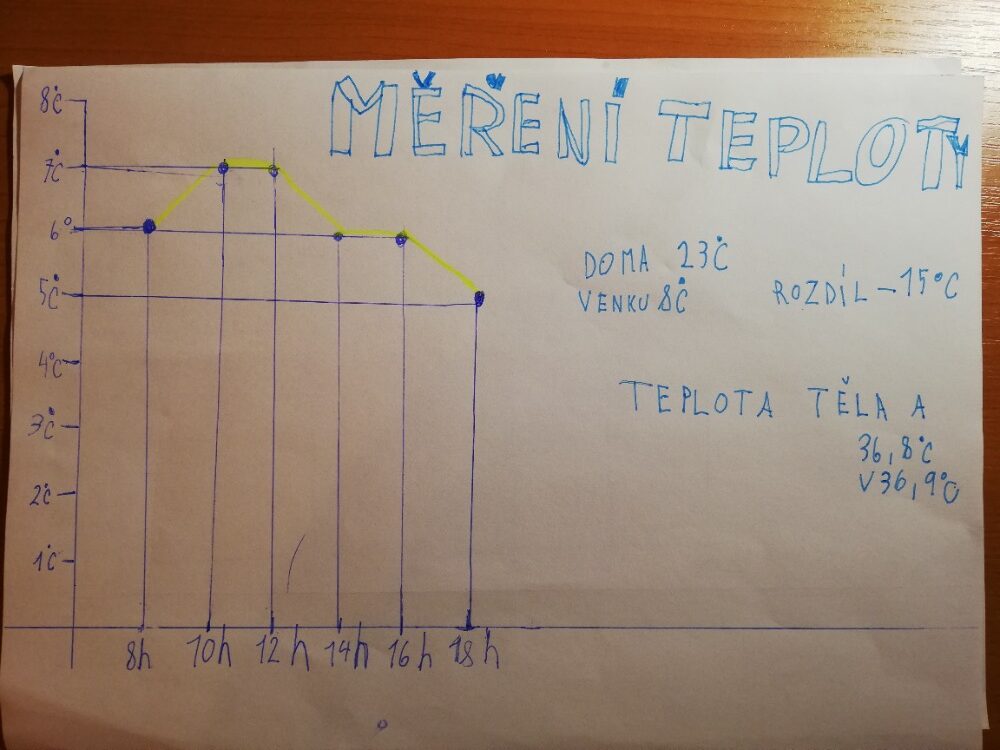 MĚŘENÍ TEPLOTY
8°C
7°C
6°
5°C
4°C
3°C
2°C
1°C
8h 10h 12h 14h 16h 18h
DOMA 23°C
VENKU 8°C
ROZDÍL – 15°C
TEPLOTA TĚLA A
36,8°C
V36,9°C